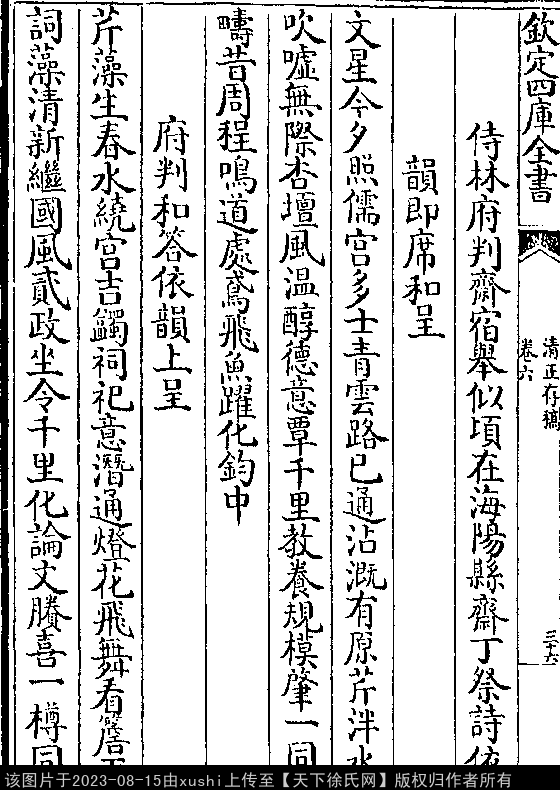 欽定四庫全書
清正存稿
卷六
三十六
侍林府判齋宿舉似頃在海陽縣齋丁祭詩依
韻即席和呈
文星今夕照儒宮多士青雲路已通沾溉有原芹泮水
吹噓無際杏壇風溫醇德意覃千里教養規模肇一同
疇昔周程鳴道處鳶飛魚躍化鈞中
府判和答依韻上呈
芹藻生春水繞宮吉蠲祠祀意潛通燈花飛舞看簷
詞藻清新繼國風貳政坐令千里化論文賸喜一樽同
该图片于2023-08-15由xushi上传至【天下徐氏网】版权归作者所有